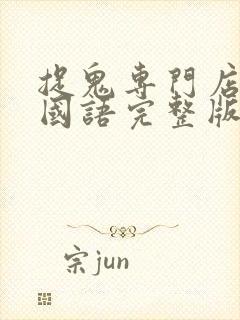 捉鬼專門店
國語完整版
宗jun